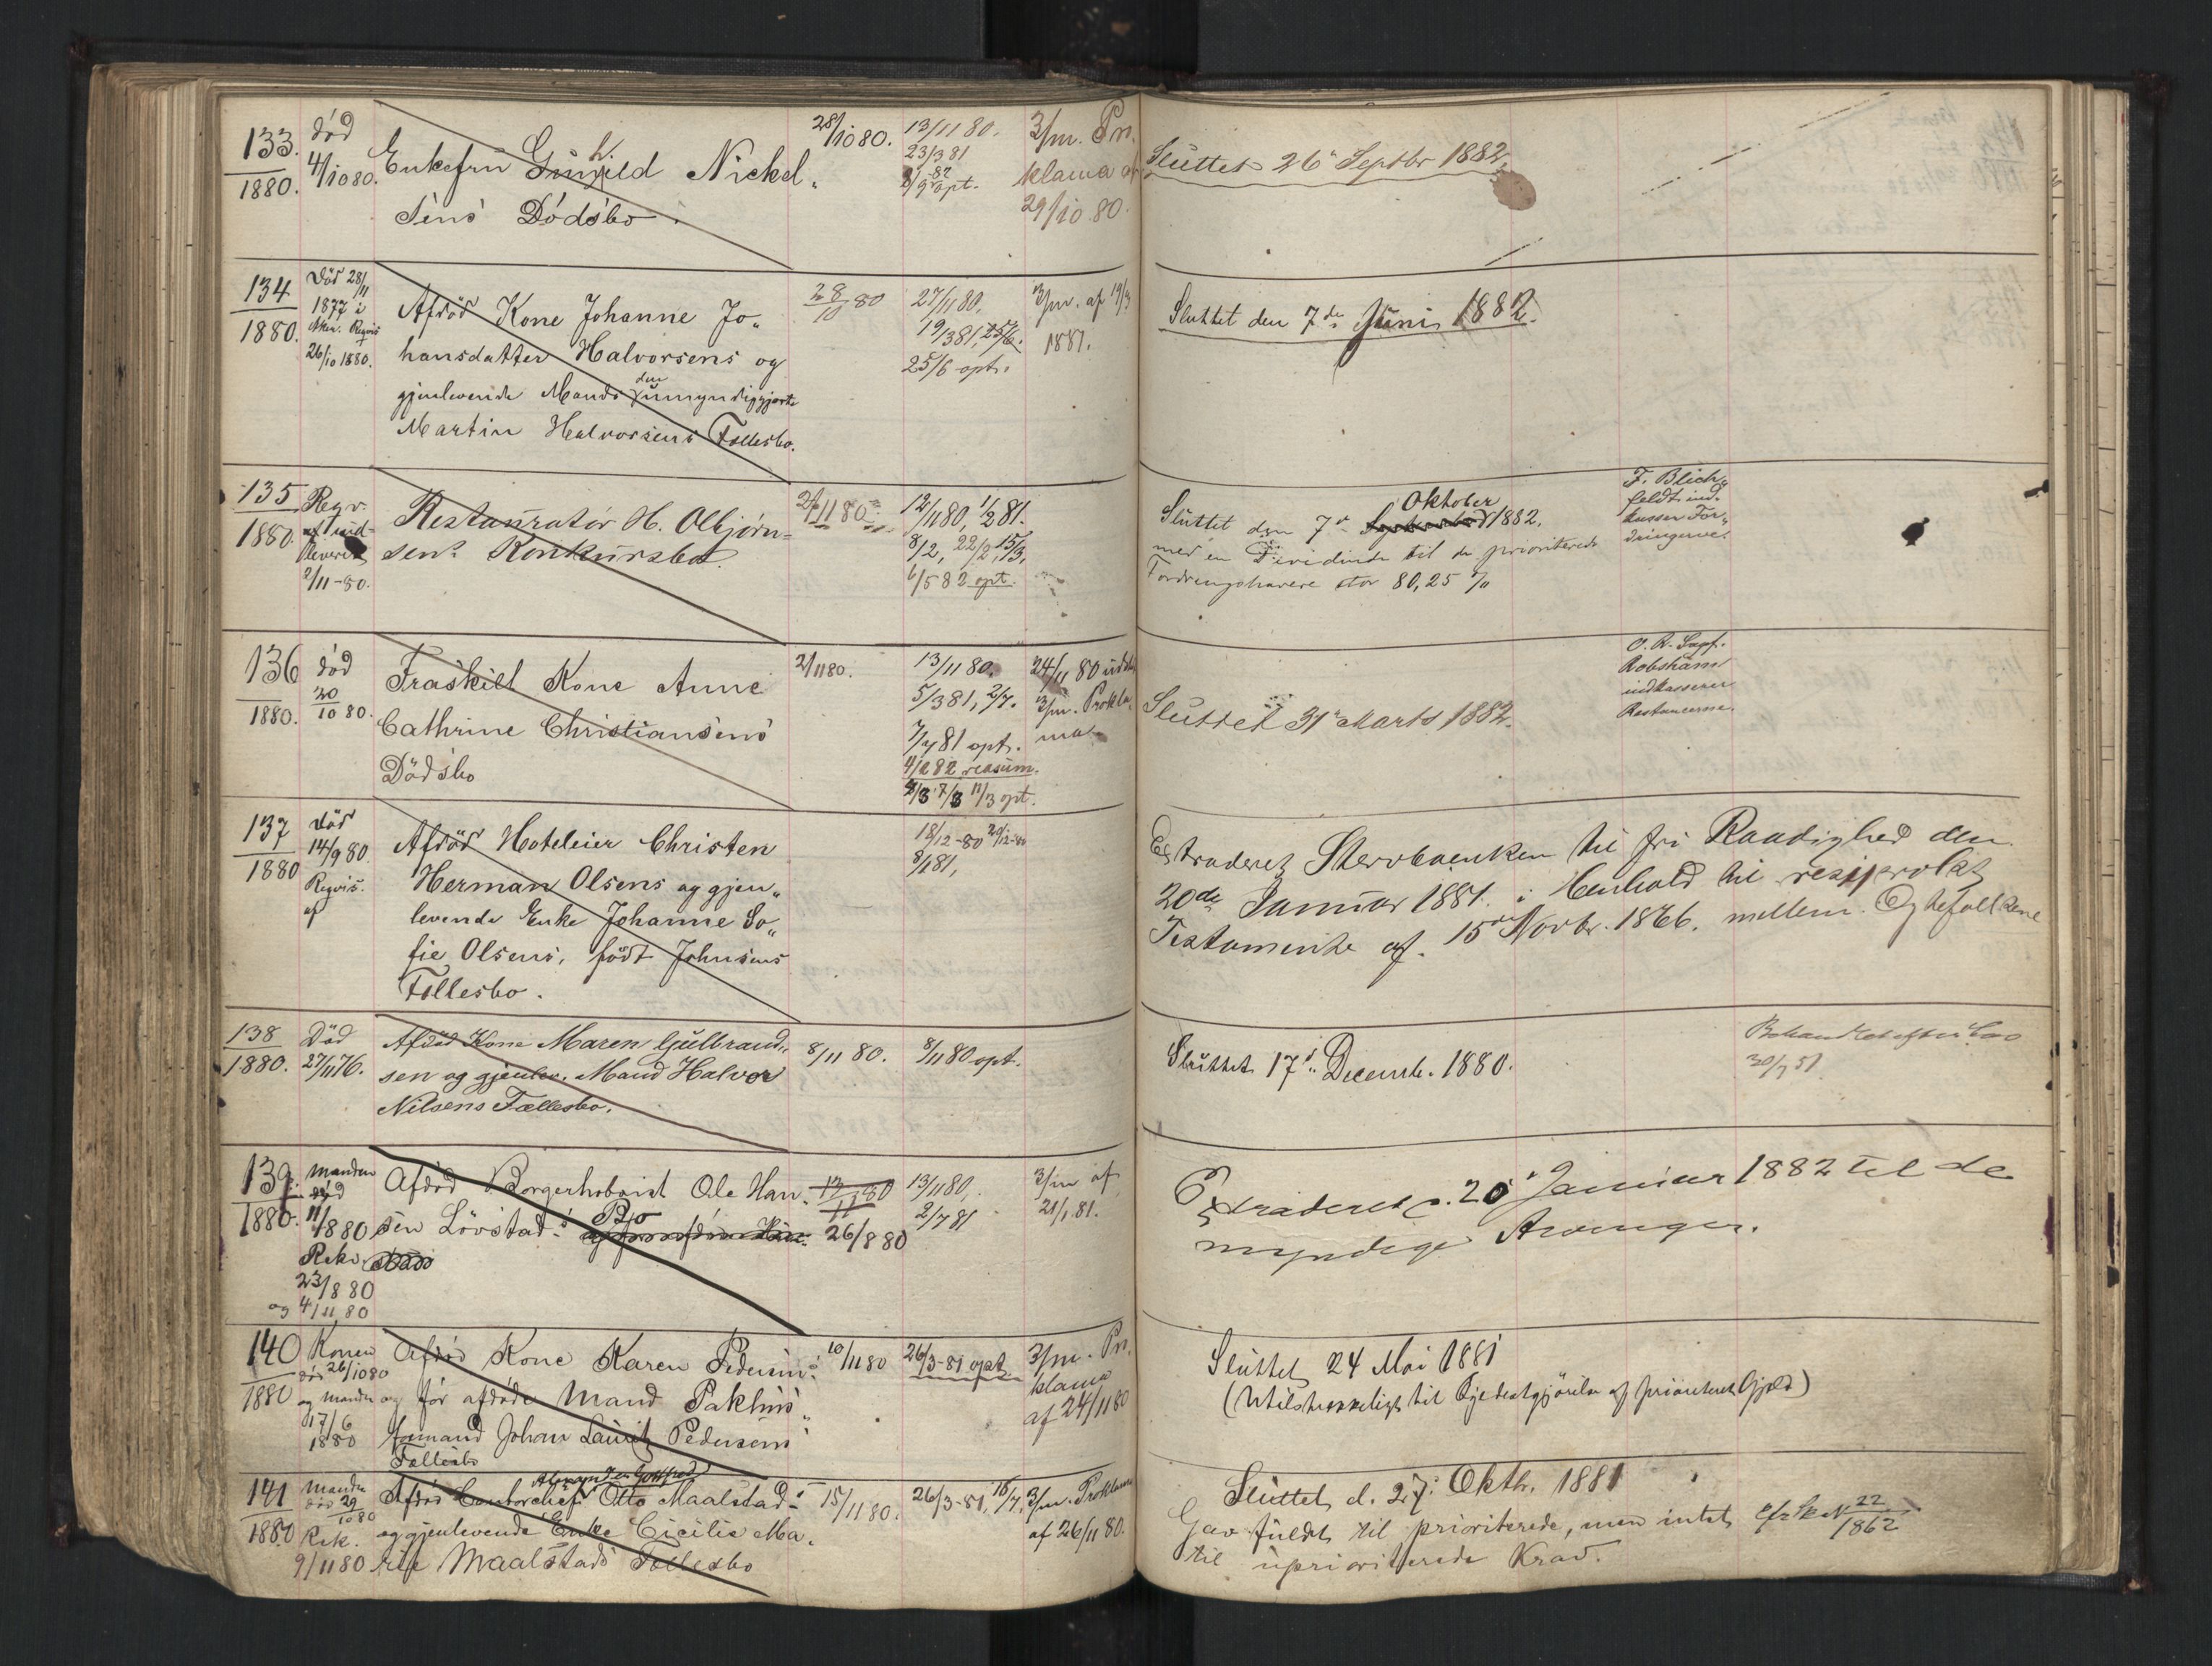 133. død Enkefru Gunhild Nickel„ 28/10 80. 13/11 80. 3/m. Pro
1880. 4/10 80. sens Dødsbo. 23/3 81 klama af
opt. 29/10 80.
Sluttet 26 Septbr 1882.
134 Død 28/11 Afdød Kone Johanne Jo„ 28/10 80 27/11 80, 3/m. af 19/3
1880. 1877 i hansdatter Halvorsens og 19/3 81, 25/6. 1881.
26/10 1880. gjenlevende Mands den umyndiggjorte 25/6 opt.
Martin Halvorsens Fællesbo.
Sluttet den 7de Juni 1882.
135 Reqv. Restauratør H. Olbjørn= 2/11 80 12/11 80, 1/2 81.
1880. sens Konkursbo. 8/2, 22/2, 15/3,
2/11-80. 6/5 82 opt.
Oktober
Sluttet den 7de 1882,
med en Dividende til de prioriterede
Fordringshavere stor 80,25 %
F. Blich„
feldt ind„
kasser For„
dringerne.
136 død Fraskilt Kone Anne 2/11 80. 13/11 80. 24/11 80 udst.
1880. 20/10 80. Cathrine Christiansens 5/3 81, 2/7. 3/m. Prokla„
Dødsbo 7/7 81 opt. ma
4/2 82 reasum.
7/3 11/3 opt.
Sluttet 31 Marts 1882.
O. R. Sagf.
Robsham
indkasserer
Restancerne.
137 Død Afdød Hoteleier Christen 18/12-80 20/12-80
1880 14/9 80. Herman Olsens og gjen„ 8/1 81,
Reqvis. levende Enke Johanne So„
af fie Olsens, født Johnsens
Fællesbo.
Extraderet Stervboenken til fri Raadighed den
20de Januar 1881. i Henhold til resiprokt
Testamente af 15de Novbr. 1866. mellem Ægtefolkene
138 Død Afdød Kone Maren Gulbrand„ 8/11 80. 8/11 80 opt.
1880. 27/11 76. sen og gjenlev. Mand Halvor
Nilsens Fællesbo.
Sluttet 17de Decemb. 1880.
139. Manden Afdød Borgerhoboist Ole Han„ 13/11 80, 3/m af
1880. død 11/8 80 sen Løvstad's Bo 26/8 80 2/7 81 21/1 81.
Rekv.
23/8 80
og 4/11 80
Extraderet d. 20 Januar 1882 til de
myndige Arvinger.
140 Konen Afdød Kone Karen Pedersens 10/11 80 26/3-81 opt. 3/m. Pro
1880 død 26/10 80 og før afdøde Mand Pakhus„ klama
og Manden formand Johan Lauritz Pedersens af 24/11 80
17/6 1880 Fællesbo
Sluttet 24 Mai 1881
(Utilstrækkeligt til Fyldestgjørelse af prioriteret Gjæld)
Alexander Gottfried
141 Manden Afdød Contorchef Otto Maalstad's 15/11 80. 26/3-81, 18/7, 3/m. Proklama
1880 død 29/10 80 og gjenlevende Enke Cicilie Ma„ af 26/11 80.
Rek. 9/11 80 rie Maalstads Fællesbo
Sluttet d. 27. Oktb. 1881
Gav fuldt til prioriterede, men intet
til uprioriterede Krav.